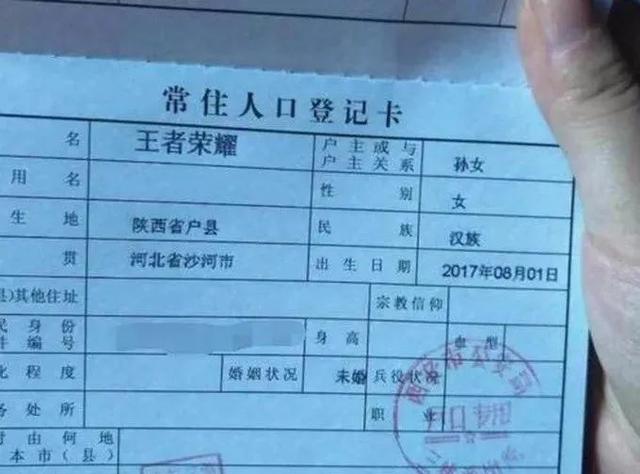 常住人口登记卡
名 王者荣耀 户主或与户主关系 孙女
用名 性别 女
生地 陕西省户县 民族 汉族
贯 河北省沙河市 出生日期 2017年08月01日
其他住址 宗教信仰
民身份件编号 身高 血型
化程度 婚姻状况 未婚 兵役状况
务处所 职业
由何地
本市(县)
户口专用